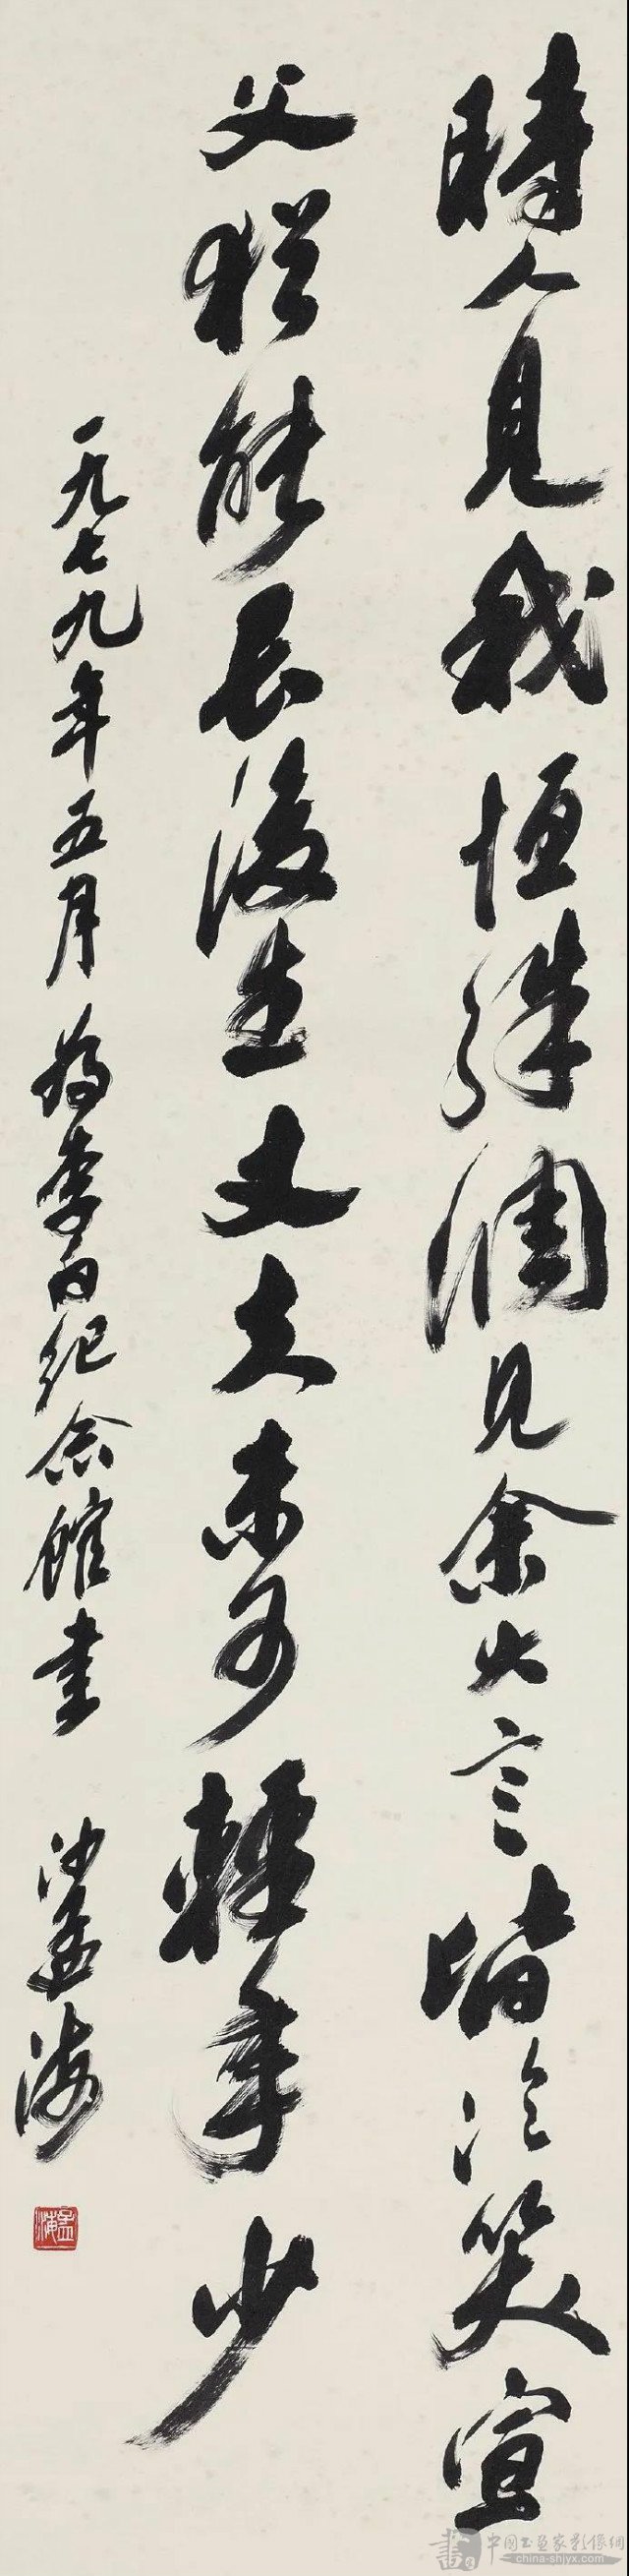 時人見我恒殊調見余大言皆冷笑宣
父猶能畏後生丈夫未可輕年少
一九七九年五月為李白纪念館書 沙孟海
孟海
中国书画家影像網
china-shjyx.com